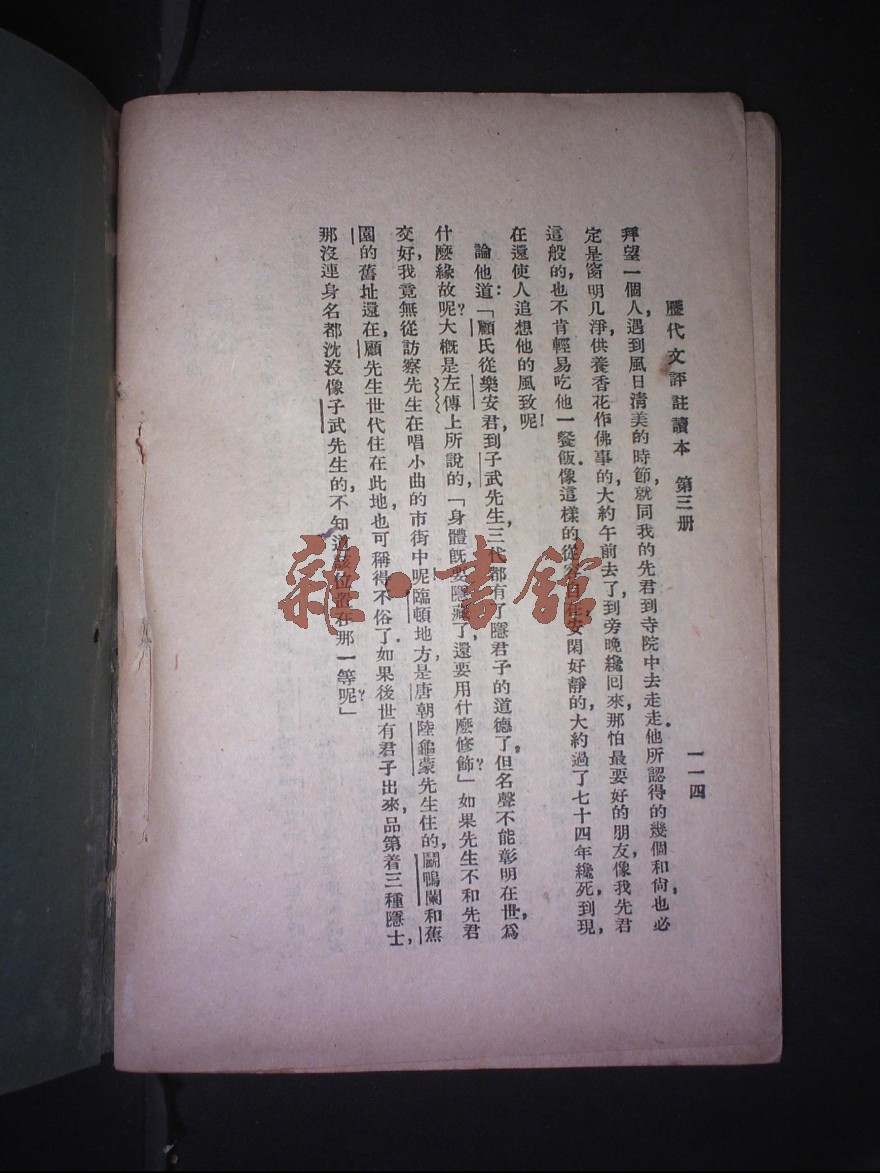 歷代文評註讀本　第三册
一一四
拜望一個人，遇到風日清美的時節，就同我的先君到寺院中去走走。他所認得的幾個和尙，也必
定是窗明几淨，供養香花作佛事的。大約午前去了，到旁晚纔回來，那怕最要好的朋友，像我先君
這般的，也不肯輕易吃他一餐飯。像這樣的從容自在，安閑好靜的，大約過了七十四年纔死，到現
在還使人追想他的風致呢！
論他道：「顧氏從樂安君，到子武先生，三代都有了隱君子的道德了，但名聲不能彰明在世，爲
什麼緣故呢？大概是左傳上所說的，「身體旣要隱藏了，還要用什麼修飾？」如果先生不和先君
交好，我竟無從訪察先生在唱小曲的市街中呢！臨頓地方，是唐朝陸龜蒙先生住的，鬭鴨闌和蕉
園的舊址還在，顧先生世代住在此地，也可稱得不俗了。如果後世有君子出來，品第着三種隱士，
那沒連身名都沈沒像子武先生的，不知道該位置在那一等呢？」
雜·書館